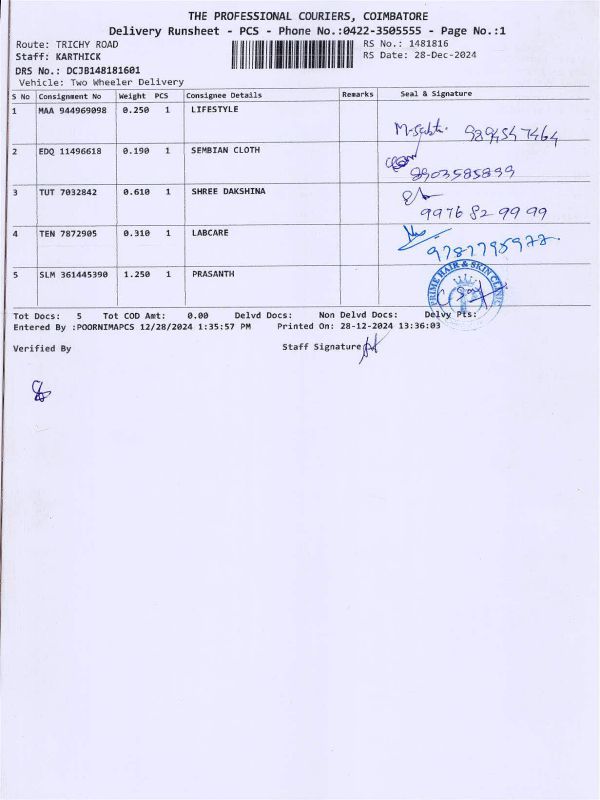 THE PROFESSIONAL COURIERS, COIMBATORE
Delivery Runsheet - PCS - Phone No.:0422-3505555 - Page No.:1
Route: TRICHY ROAD RS No.: 1481816
Staff: KARTHICK RS Date: 28-Dec-2024
DRS No.: DCJB148181601
Vehicle: Two Wheeler Delivery
S No Consignment No Weight PCS Consignee Details Remarks Seal & Signature
1 MAA 944969098 0.250 1 LIFESTYLE
9894547464
2 EDQ 11496618 0.190 1 SEMBIAN CLOTH
8903585899
3 TUT 7032842 0.610 1 SHREE DAKSHINA
9976 82 99 99
4 TEN 7872905 0.310 1 LABCARE
5 SLM 361445390 1.250 1 PRASANTH
PRIME HAIR & SKIN CLINIC
Tot Docs: 5 Tot COD Amt: 0.00 Delvd Docs: Non Delvd Docs: Delvy Pts:
Entered By :POORNIMAPCS 12/28/2024 1:35:57 PM Printed On: 28-12-2024 13:36:03
Verified By Staff Signature